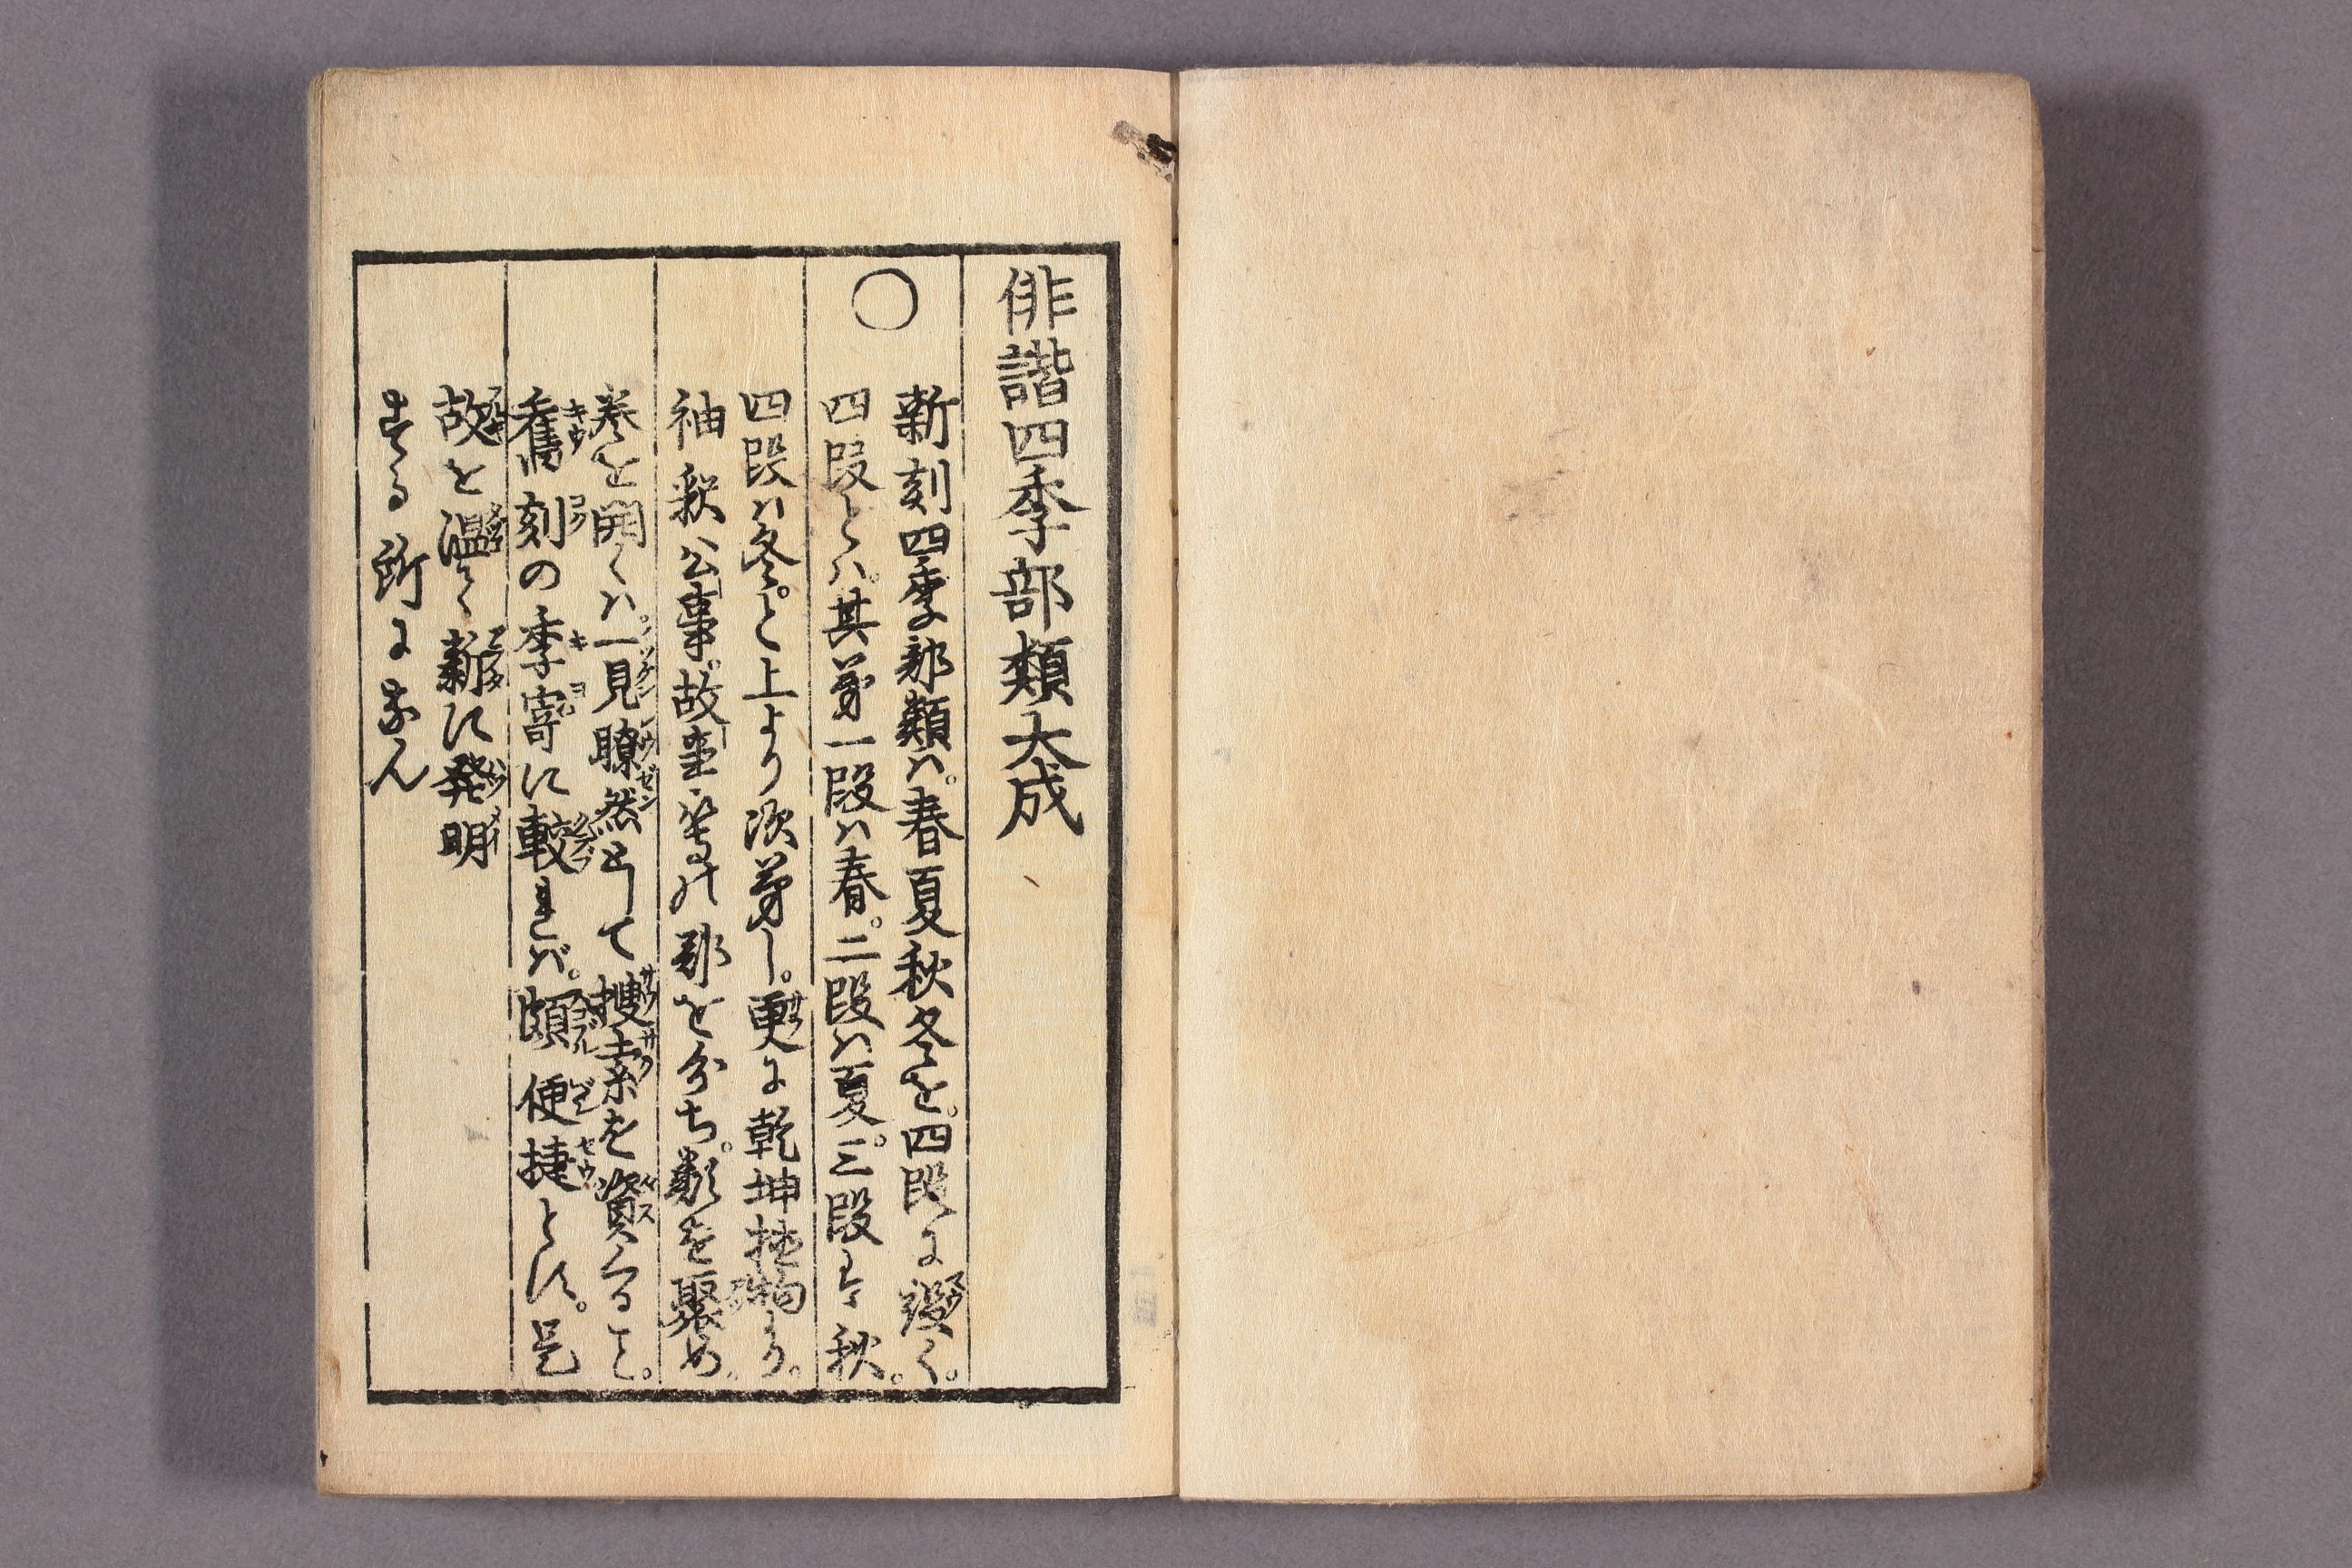 俳諧四季部類大成
○
新刻四季部類ハ。春夏秋冬を。四段に綴く。
四段とハ。其第一段ハ春。二段ハ夏。三段ハ秋。
四段ハ冬。と上より次第し。更に乾坤
神釈公事。故事等の部を分ち。類を聚め。
巻を開くハ。一見瞭然として捜索を資くること。
舊刻の季寄に較れバ。頗便捷とす。是
故を温て新に発明
する所になん